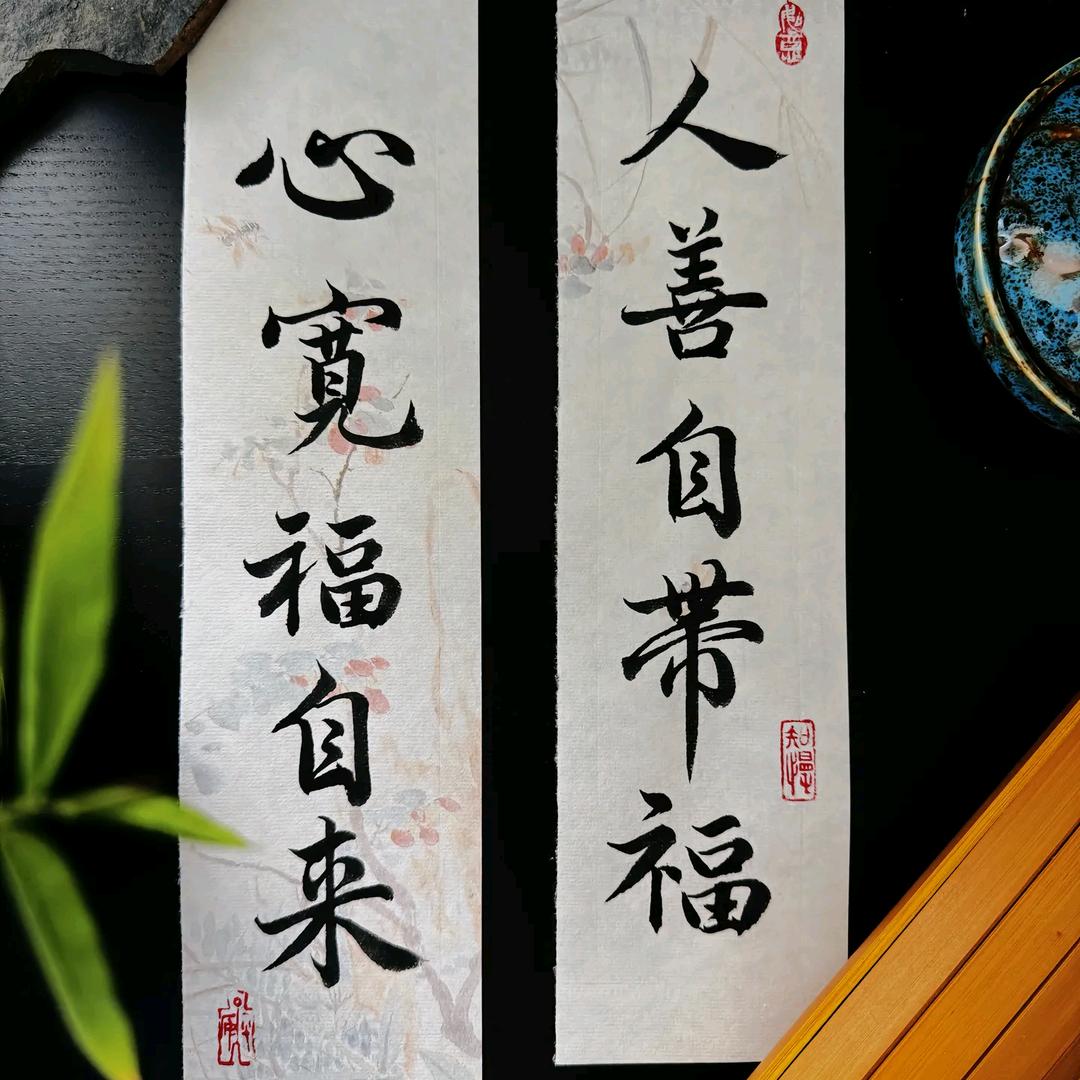 人善自带福
心寬福自来
知慢